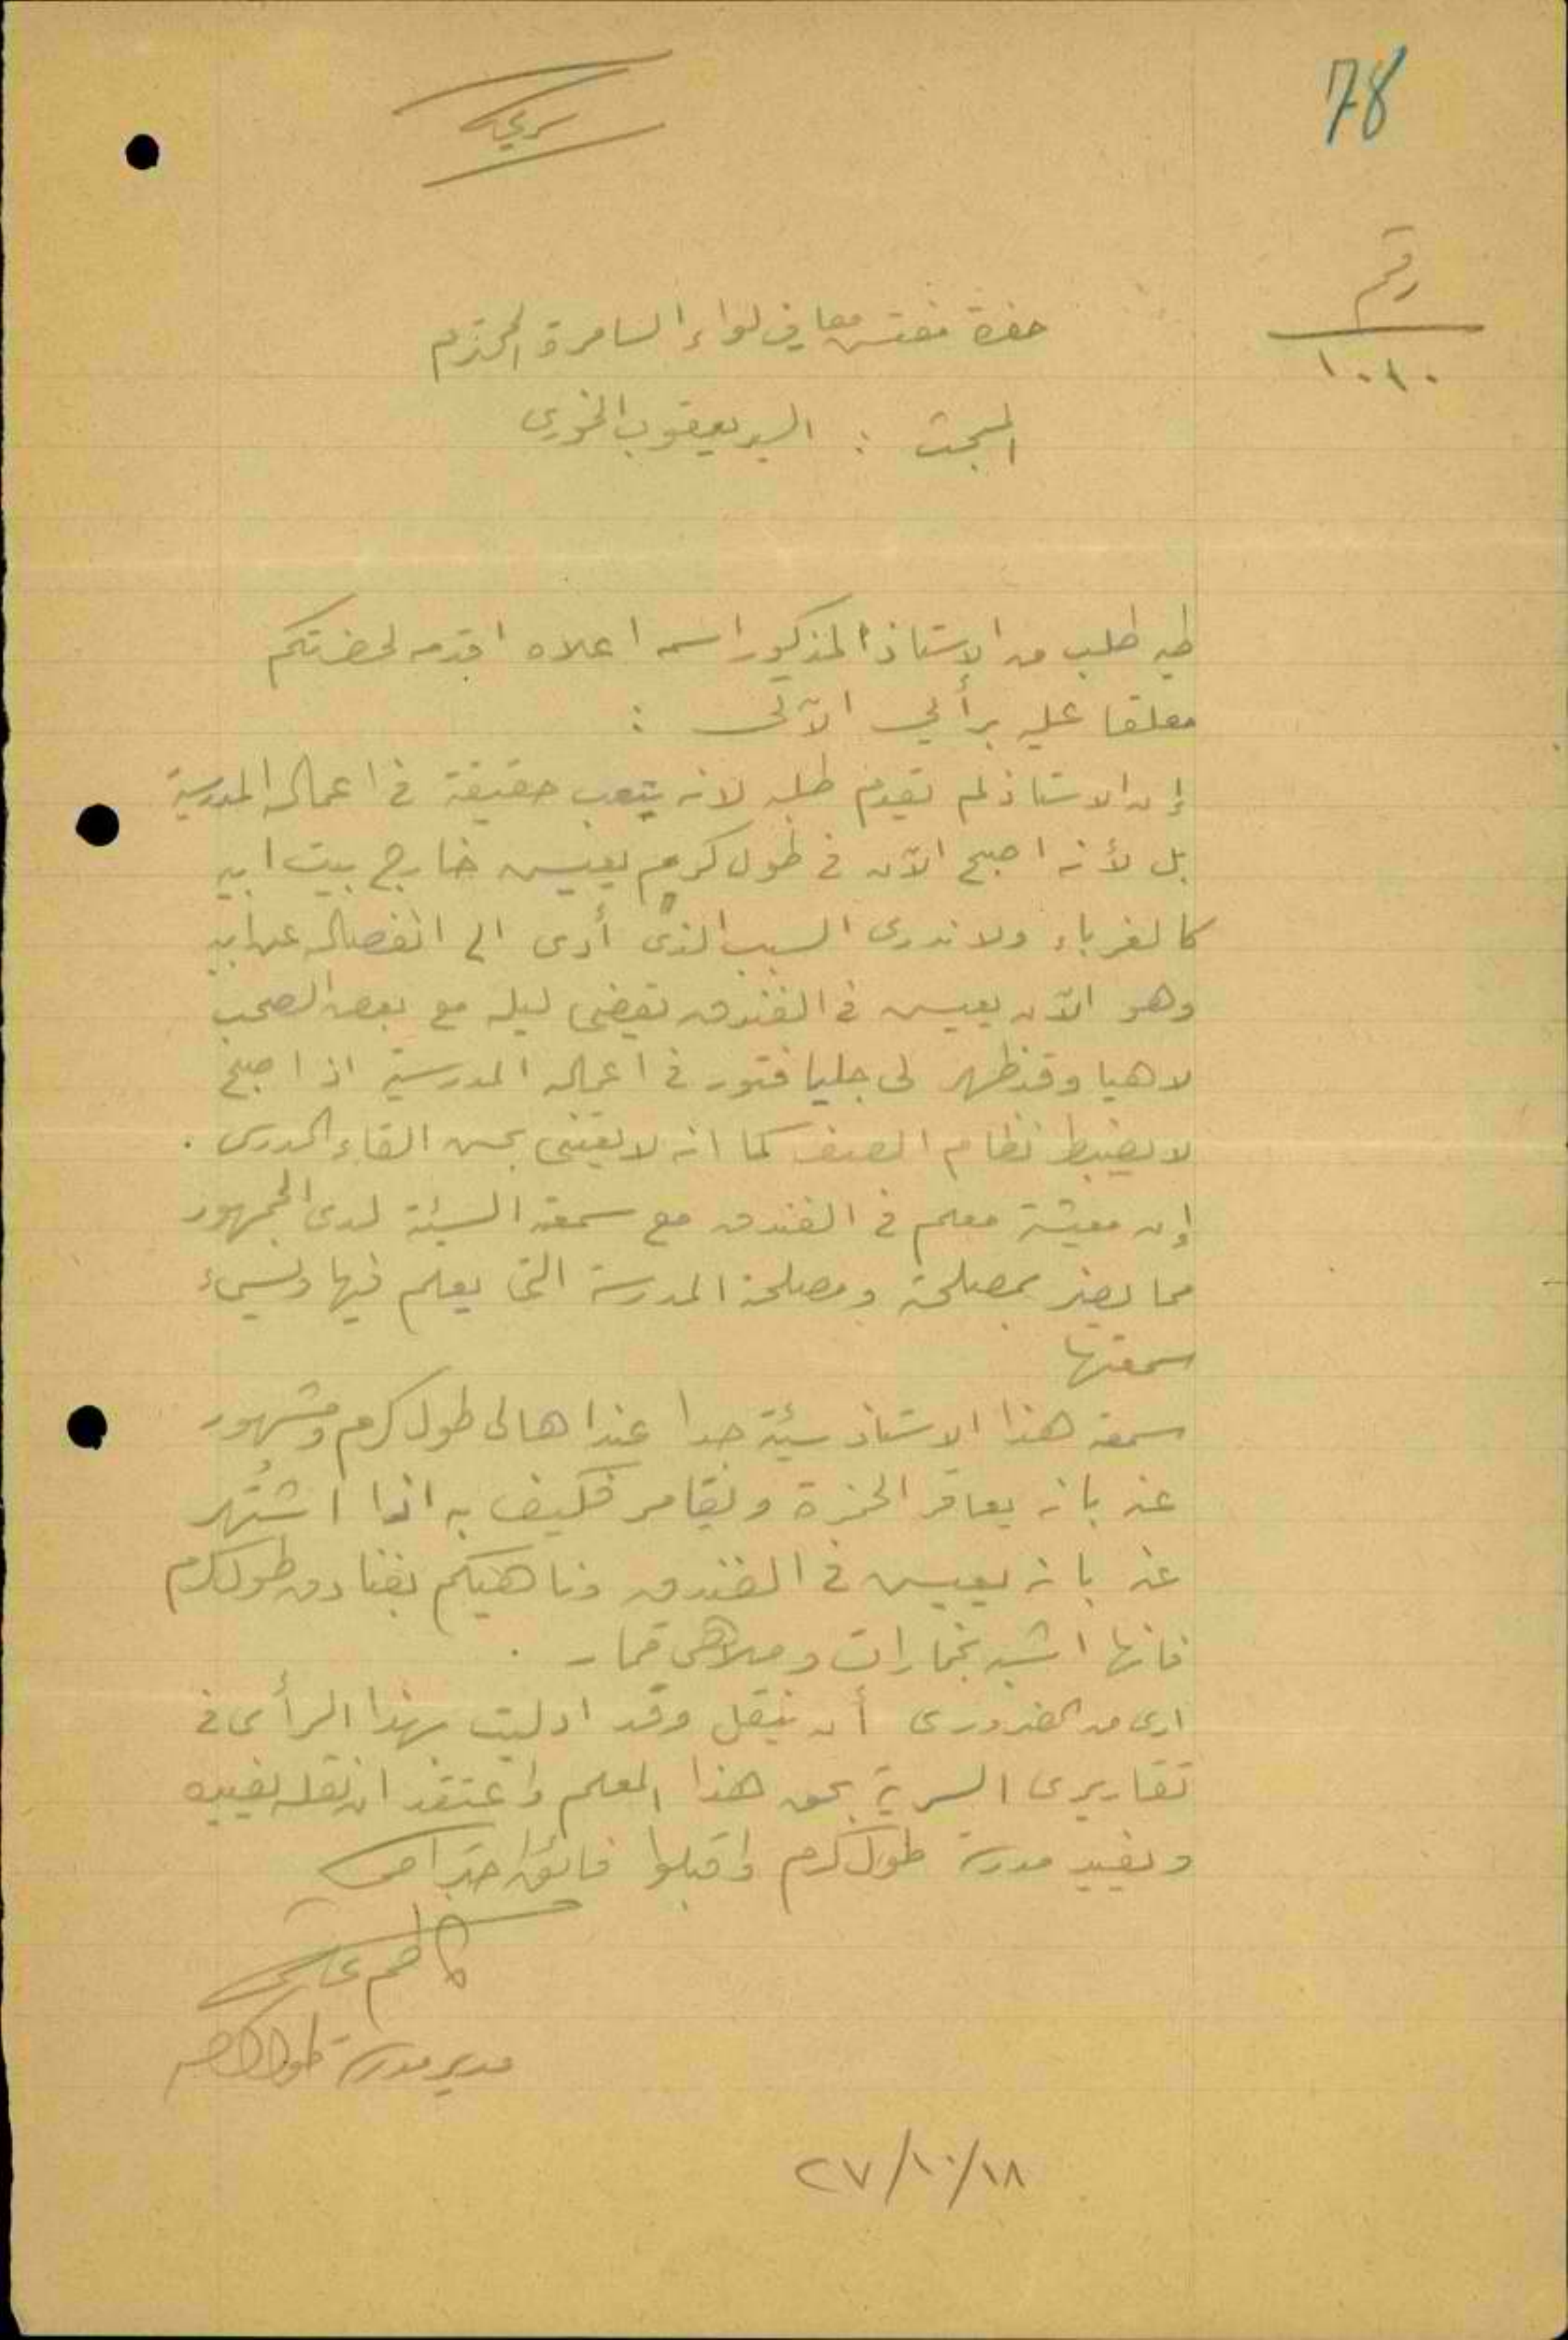 78
سري
رقم
١٠٨٠
حضرة مفتش معارف لواء السامرة المحترم
المبحث : السيد يعقوب الخوري
طيه طلب من الاستاذ المذكور اسمه اعلاه اقدمه لحضرتكم
معلقا عليه برأيي الآتي :
إن الاستاذ لم يقدم طلبه لانه يتعب حقيقة في اعماله المدرسية
بل لأنه اصبح الآن في طول كرم يعيش خارج بيت ابيه
كالغرباء ولا ندري السبب الذي أدى الى انفصاله عن ابيه
وهو الآن يعيش في الفندق يقضي ليله مع بعض الصحب
لاهيا وقد ظهر لي جليا فتور في اعماله المدرسية اذ اصبح
لا يضبط نظام الصف كما انه لا يعتني بحسن القاء الدرس .
إن معيشة معلم في الفندق مع سمعته السيئة لدى الجمهور
مما يضر بمصلحته ومصلحة المدرسة التي يعلم فيها ويسيء
سمعتها
سمعة هذا الاستاذ سيئة جدا عند اهالي طول كرم ومشهور
عنه بانه يعاقر الخمرة ويقامر فكيف به اذا اشتُهر
عنه بانه يعيش في الفندق وناهيكم بفنادق طول كرم
فانها اشبه بخمارات وملاهي قمار .
ارى من الضروري أن ينقل وقد ادليت بهذا الرأي في
تقاريري السرية بحق هذا المعلم واعتقد ان نقله يفيده
ويفيد مدرسة طول كرم واقبلوا فائق احترامي
كاظم
مدير مدرسة طول كرم
٢٧/١٠/١٨